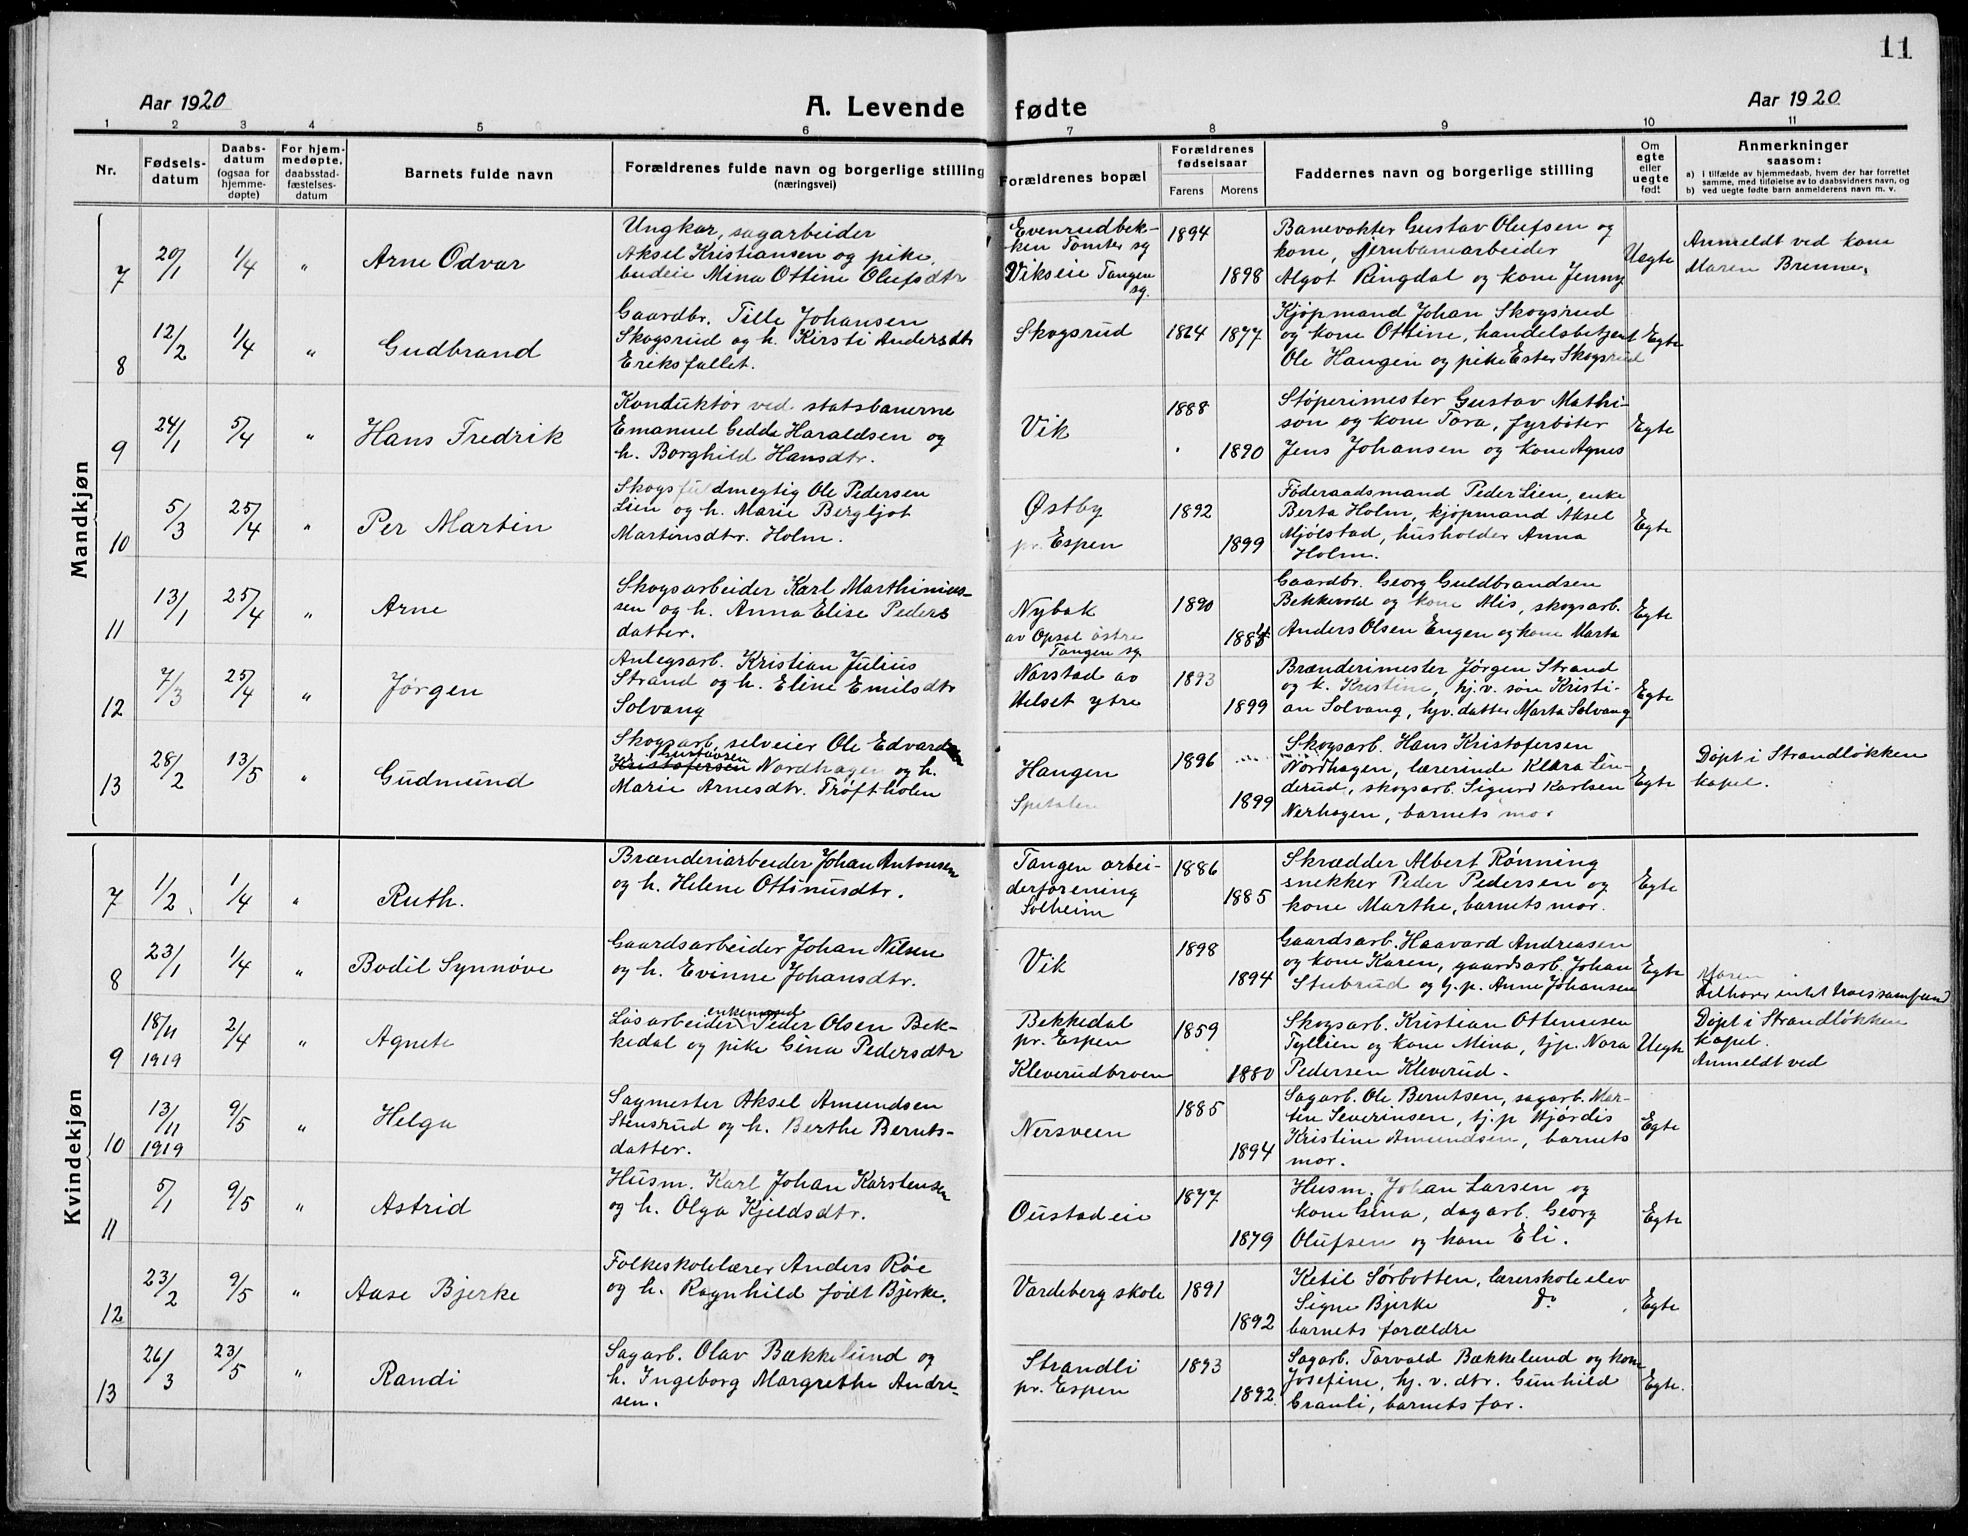 11
Aar 1920
A. Levende fødte
Aar 1920
1 2 3 4 5 6 7 8 9 10 11
Nr.
Fødsels-
datum
Daabs-
datum
(ogsaa for
hjemme-
døpte)
For hjem-
medøpte,
daabsstad-
fæstelses-
datum
Barnets fulde navn
Forældrenes fulde navn og borgerlige stilling
(næringsvei)
Forældrenes bopæl
Forældrenes
fødselsaar
Farens Morens
Faddernes navn og borgerlige stilling
Om
egte
eller
uegte
født
Anmerkninger
saasom:
a) i tilfælde av hjemmedaab, hvem der har forrettet
samme, med tilføielse av to daabsvidners navn, og
b) ved uegte fødte barn anmelderens navn m. v.
Mandkjøn
7
20/1
1/4
"
Arne Odvar
Ungkar, sagarbeider
Aksel Kristiansen og pike,
budeie Mina Ottine Olufsdtr
Evenrudbek-
ken Tomter sg
Vikseie Tangen
sg.
1894
1898
Banevokter Gustav Olufsen og
kone, jernbanearbeider
Algot Ringdal og kone Jenny
Uegte
Anmeldt ved kone
Maren Brenne.
8
12/2
1/4
"
Gudbrand
Gaardbr. Tille Johansen
Skogsrud og h. Kirsti Andersdtr
Eriksfallet.
Skogsrud
1864
1877
Kjøpmand Johan Skogsrud
og kone Ottine, handelsbetjent
Ole Haugen og pike Ester Skogsrud
Egte
9
24/1
5/4
"
Hans Fredrik
Konduktør ved statsbanerne
Emanuel Gedde Haraldsen og
h. Borghild Hansdtr.
Vik
1888
1890
Støperimester Gustav Mathi-
son og kone Tora, fyrbøter
Jens Johansen og kone Agnes
Egte
10
5/3
25/4
"
Per Martin
Skogsfuldmegtig Ole Pedersen
Lien og h. Marie Bergljot
Martinsdtr. Holm.
Østby
pr. Espen
1892
1899
Føderaadsmand Peder Lien, enke
Berta Holm, kjøpmand Aksel
Mjølstad, husholder Anna
Holm.
Egte
11
13/1
25/4
"
Arne
Skogsarbeider Karl Marthinius-
sen og h. Anna Elise Peders
datter.
Nybak
av Opsal østre
Tangen sg.
1890
1884
Gaardbr. Georg Guldbrandsen
Bekkevold og kone Alis, skogsarb.
Anders Olsen Engen og kone Marta
Egte
12
7/3
25/4
"
Jørgen
Anlegsarb. Kristian Julius
Strand og h. Eline Emilsdtr
Solvang
Norstad av
Helset ytre
1893
1899
Brænderimester Jørgen Strand
og k. Kristine, hj.v. søn Kristi-
an Solvang, hjv. datter Marta Solvang
Egte
13
28/2
13/5
"
Gudmund
Skogsarb. selveier Ole Edvard
Gustavsen
Kristofersen Nordhagen og h.
Marie Arnesdtr. Trøftholen
Haugen
Spetalen
1896
1899
Skogsarb. Hans Kristofersen
Nordhagen, lærerinde Klara Lin-
derud, skogsarb. Sigurd Karlsen
Nerhagen, barnets mor
Egte
Døpt i Strandløkken
kapel.
Kvindekjøn
7
1/2
1/4
"
Ruth.
Brænderiarbeider Johan Antonsen
og h. Helene Ottinusdtr.
Tangen arbei-
derforening
Solheim
1886
1885
Skrædder Albert Rønning
snekker Peder Pedersen og
kone Marthe, barnets mor.
Egte
8
23/1
1/4
"
Bodil Synnøve
Gaardsarbeider Johan Nilsen
og h. Evinne Johansdtr.
Vik
1898
1894
Gaardsarb. Haavard Andreasen
og kone Karen, gaardsarb. Johan
Stubrud og tj.p. Anne Johansen
Egte
Moren
tilhører intet trossamfund
9
18/11
1919
2/4
"
Agnete
enkemand
Løsarbeider Peder Olsen Bek-
kedal og pike Gina Pedersdtr
Bekkedal
pr. Espen
Kleverudbroen
1859
1880
Skogsarb. Kristian Ottensen
og kone Mina, tjp. Nora
Pedersen Kleverud.
Uegte
Døpt i Strandløkken
kapel.
Anmeldt ved
10
13/11
1919
9/5
"
Helga
Sagmester Aksel Amundsen
Stensrud og h. Berthe Bernts-
datter.
Nersveen
1885
1894
Sagarb. Ole Berntsen, sagarb. Mar-
tin Severinsen, tj.p Hjørdis
Kristine Amundsen, barnets
mor.
Egte
11
5/1
9/5
"
Astrid
Husm. Karl Johan Karstensen
og h. Olga Kjeldsdtr.
Oustad eie
1877
1879
Husm. Johan Larsen og
kone Gina, dagarb. Georg
Olufsen og kone Eli.
Egte
12
23/2
9/5
"
Aase Bjerke
Folkeskolelærer Anders Røe
og h. Ragnhild født Bjerke.
Vardeberg skole
1891
1892
Ketil Sørbotten, lærerskoleelev
Signe Bjerke do
barnets forældre
Egte
13
26/3
23/5
"
Randi
Sagarb. Olav Bækkelund og
h. Ingeborg Margrethe Andre-
sen.
Strandli
pr. Espen
1893
1892
Sagarb. Torvald Bækkelund og kone
Josefine, hj. v. dtr. Gunhild
Granli, barnets far.
Egte.